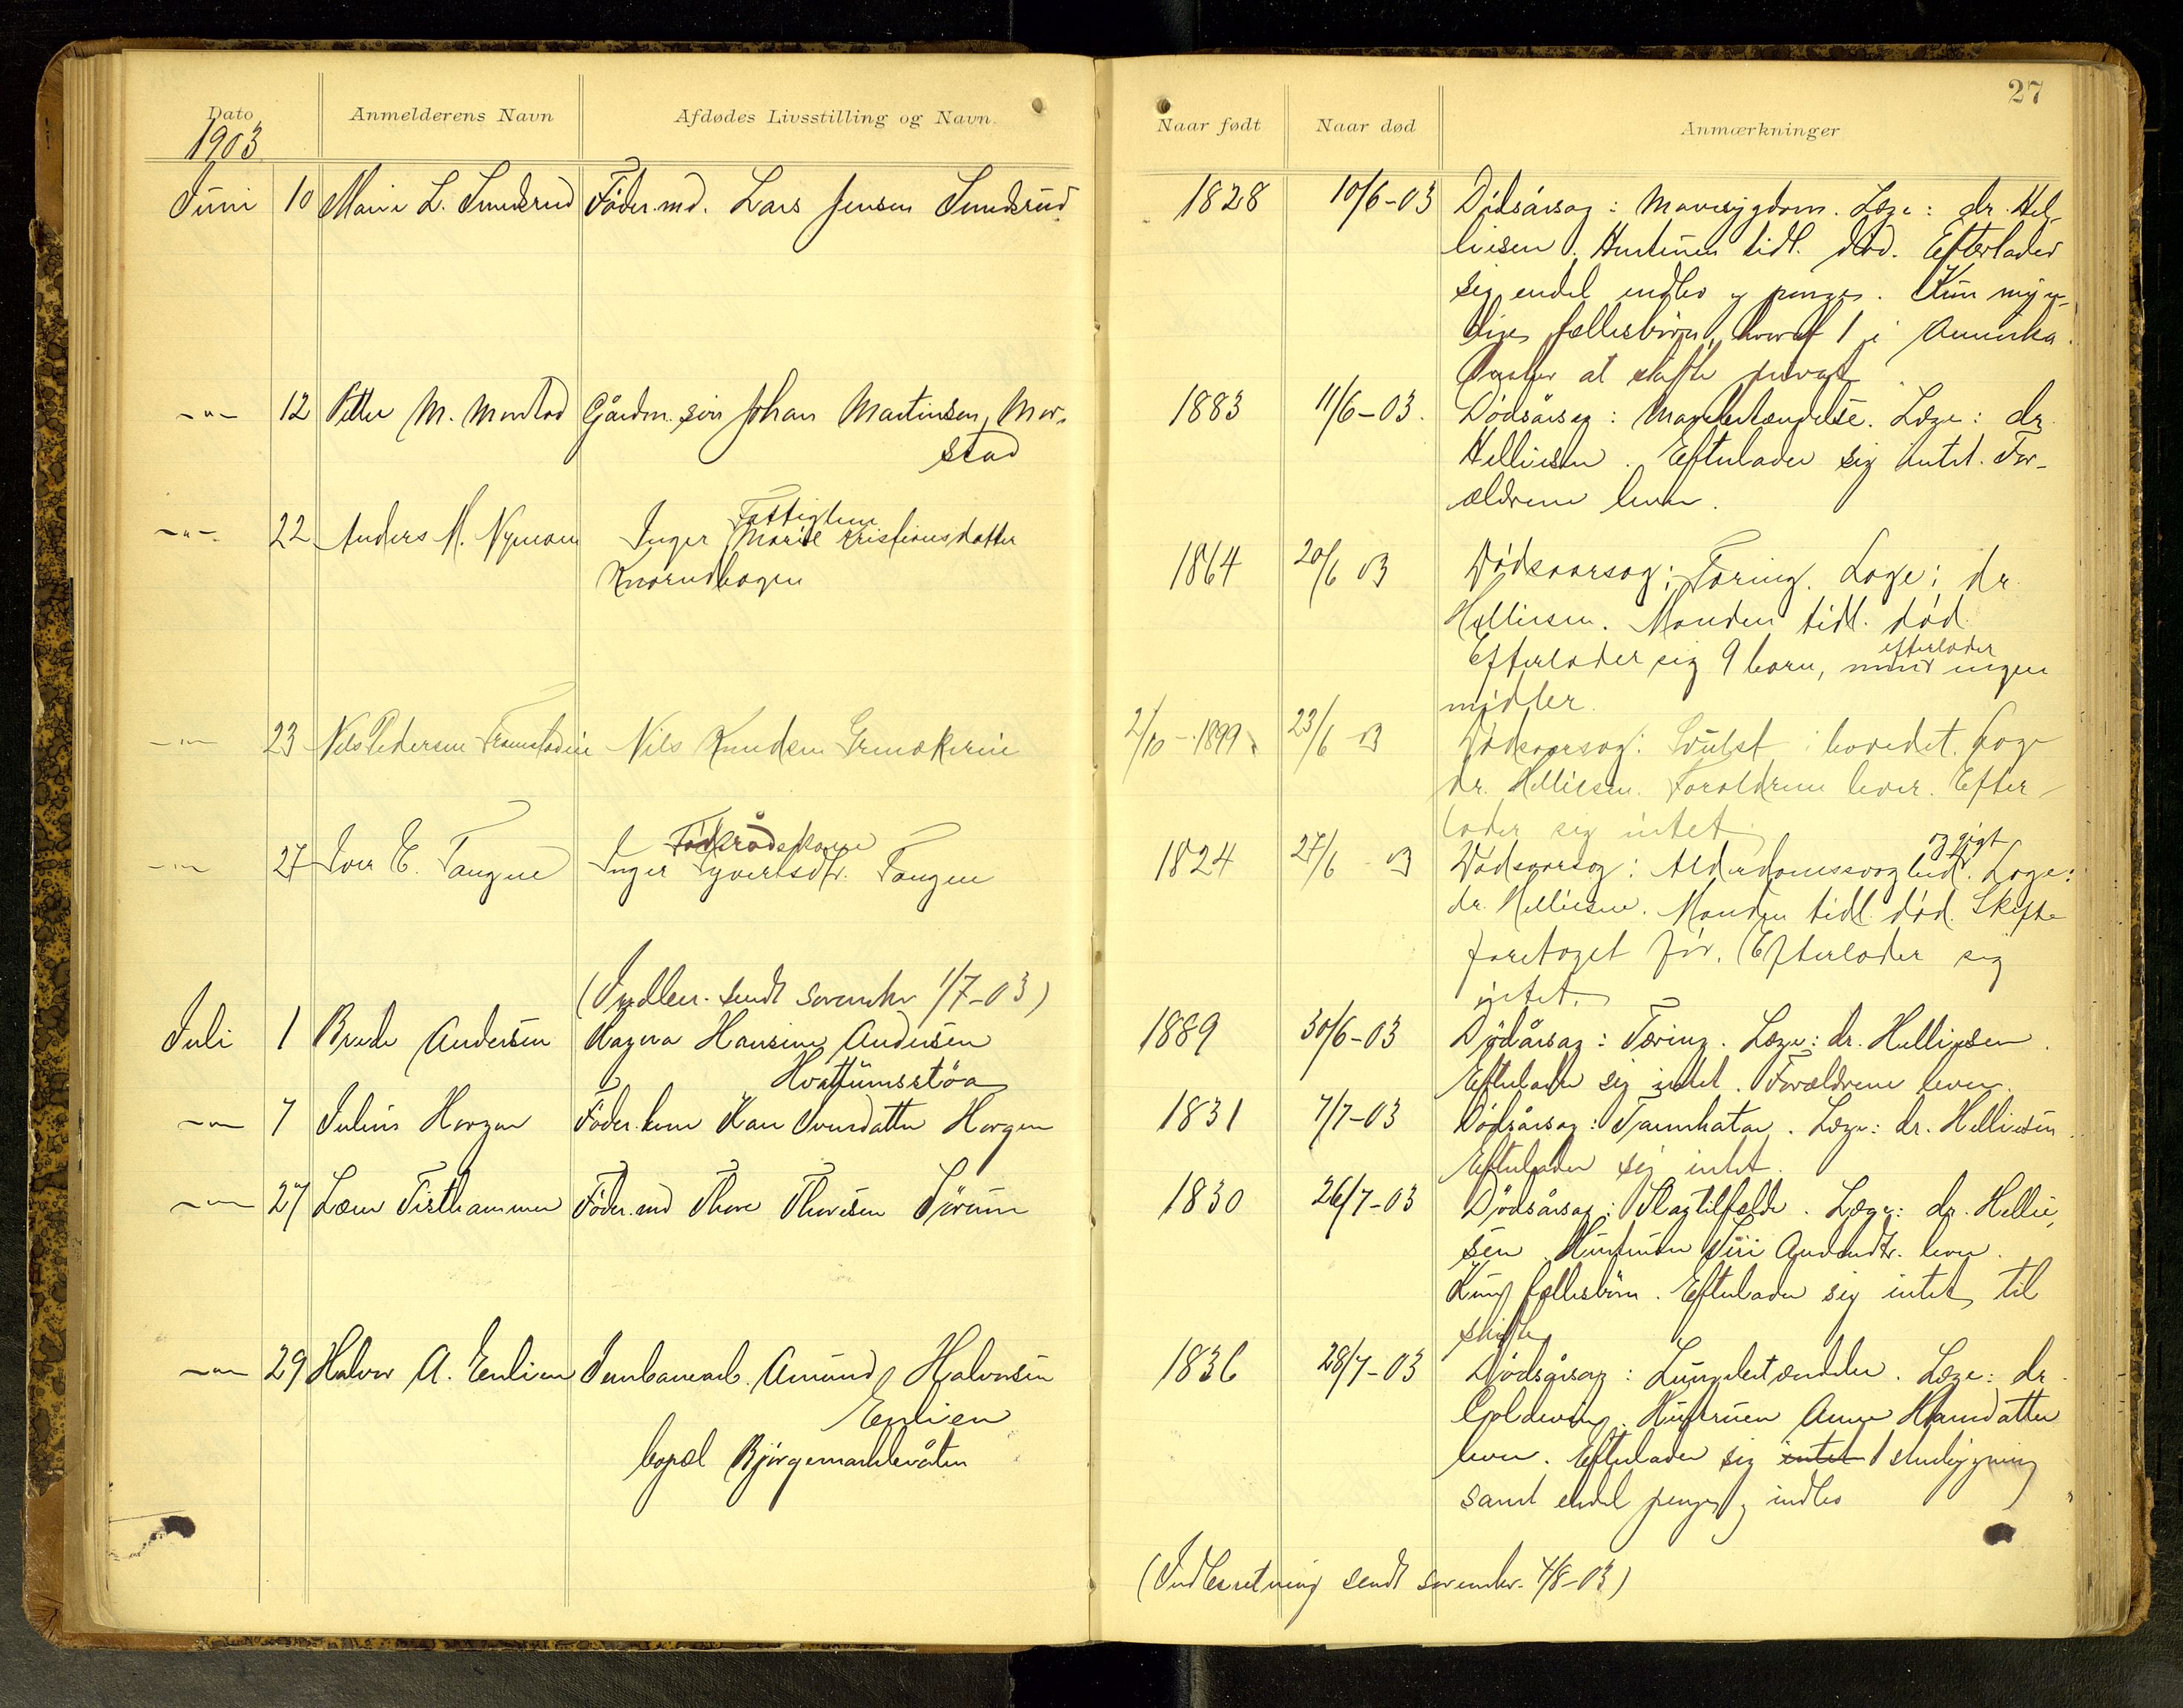 27
Dato Anmelderens Navn Afdødes Livsstilling og Navn. Naar født Naar død Anmærkninger
1903
Juni 10 Marie L. Sundsrud Føder.md. Lars Jensen Sundsrud 1828 10/6-03 Dödsårsag: Mavesygdom. Læge: dr. Hel-
liesen. Hustruen tidl. död. Efterlader
sig endel indbo og penge. Kun myn-
dige fællesbörn, hvoraf 1 i Amerika.
Ønsker at skifte privat
-"- 12 Petter M. Morstad Gårdm. sön Johan Martinsen Mor- 1883 11/6-03. Dödsårsag: Mavebetændelse. Læge: dr.
stad Helliesen. Efterlader sig intet. For-
ældrene lever.
Fattiglem
-"- 22 Anders M. Nymoen Inger Marie Kristiansdatter 1864 20/6 03 Dødsaarsag: Tæring. Læge: dr.
Knarudhagen
Helliesen. Manden tidl. død.
efterlader
Efterlader sig 9 børn, ingen
midler.
-"- 23 Nils Pedersen Nils Knudsen 2/10-1899 23/6 03 Dødsaarsag: Svulst i hovedet. Læge
dr. Helliesen. Forældrene lever. Efter-
lader sig intet.
Föderådskone og gigt
-"- 27 Iver E. Tangen Inger Syverlsdtr. Tangen 1824 27/6 - 03 Dødsaarsag: Alderdomssvaghed. Læge:
dr. Helliesen. Manden tidl. død. Skifte
foretaget før. Efterlader sig
intet.
(Indber. sendt sorenskr 1/7-03)
Juli 1 Brede Andersen Ragna Hansine Andersen 1889 30/6-03 Dödsårsag: Tæring. Læge: dr. Helliesen.
Hvattumsstöa Efterlader sig intet. Forældrene lever.
-"- 7 Julius Horgen Føder.kone Kari Iversdatter Horgen 1831 7/7-03 Dödsårsag: Tarmkatar. Læge: dr. Helliesen.
Efterlader sig intet.
-"- 27 Føder.md Thore Thoresen Sörum 1830 26/7-03 Dödsårsag: Slagtilfælde. Læge: dr. Hellie-
sen. Hustruen Siri Amundsdtr. lever.
Kun fællesbörn. Efterlader sig intet til
skifte
-"- 29 Halvor A. Enlien Jernbanearb. Amund Halvorsen 1836 28/7-03 Dödsårsag: Lungebetændelse. Læge: dr.
Enlien
Hustruen Anne Hansdatter
bopæl
lever. Efterlader sig intet 1 stuebygning
samt endel penge og indbo
(Indberetning sendt sorenskr. 4/8-03)